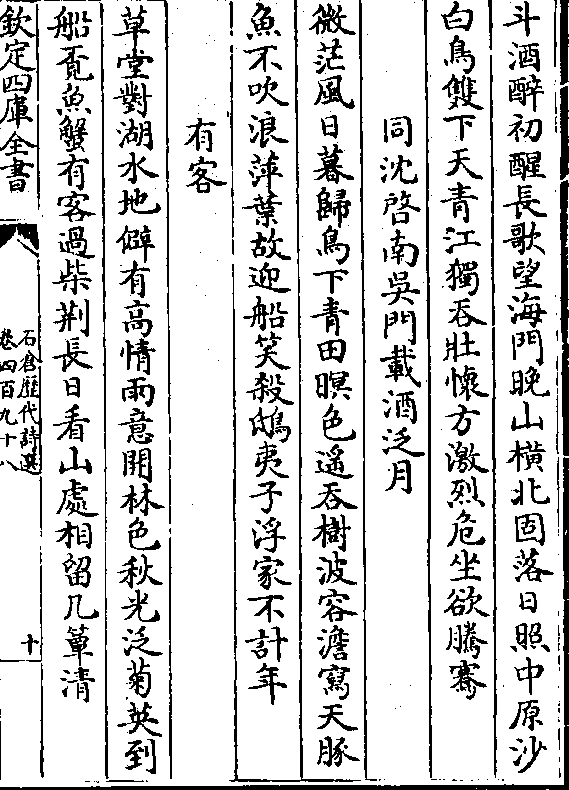 斗酒醉初醒長歌望海門晚山橫北固落日照中原沙
白鳥雙下天青江獨吞壯懷方激烈危坐欲騰騫
同沈啓南吳門載酒泛月
微茫風日暮歸鳥下青田暝色遥吞樹波容澹寫天豚
魚不吹浪萍葉故迎船笑殺鴟夷子浮家不計年
有客
草堂對湖水地僻有高情雨意開林色秋光泛菊英到
船覔魚蟹有客過柴荆長日看山處相留几簟清
欽定四庫全書
石倉歷代詩選
卷四百九十八
十